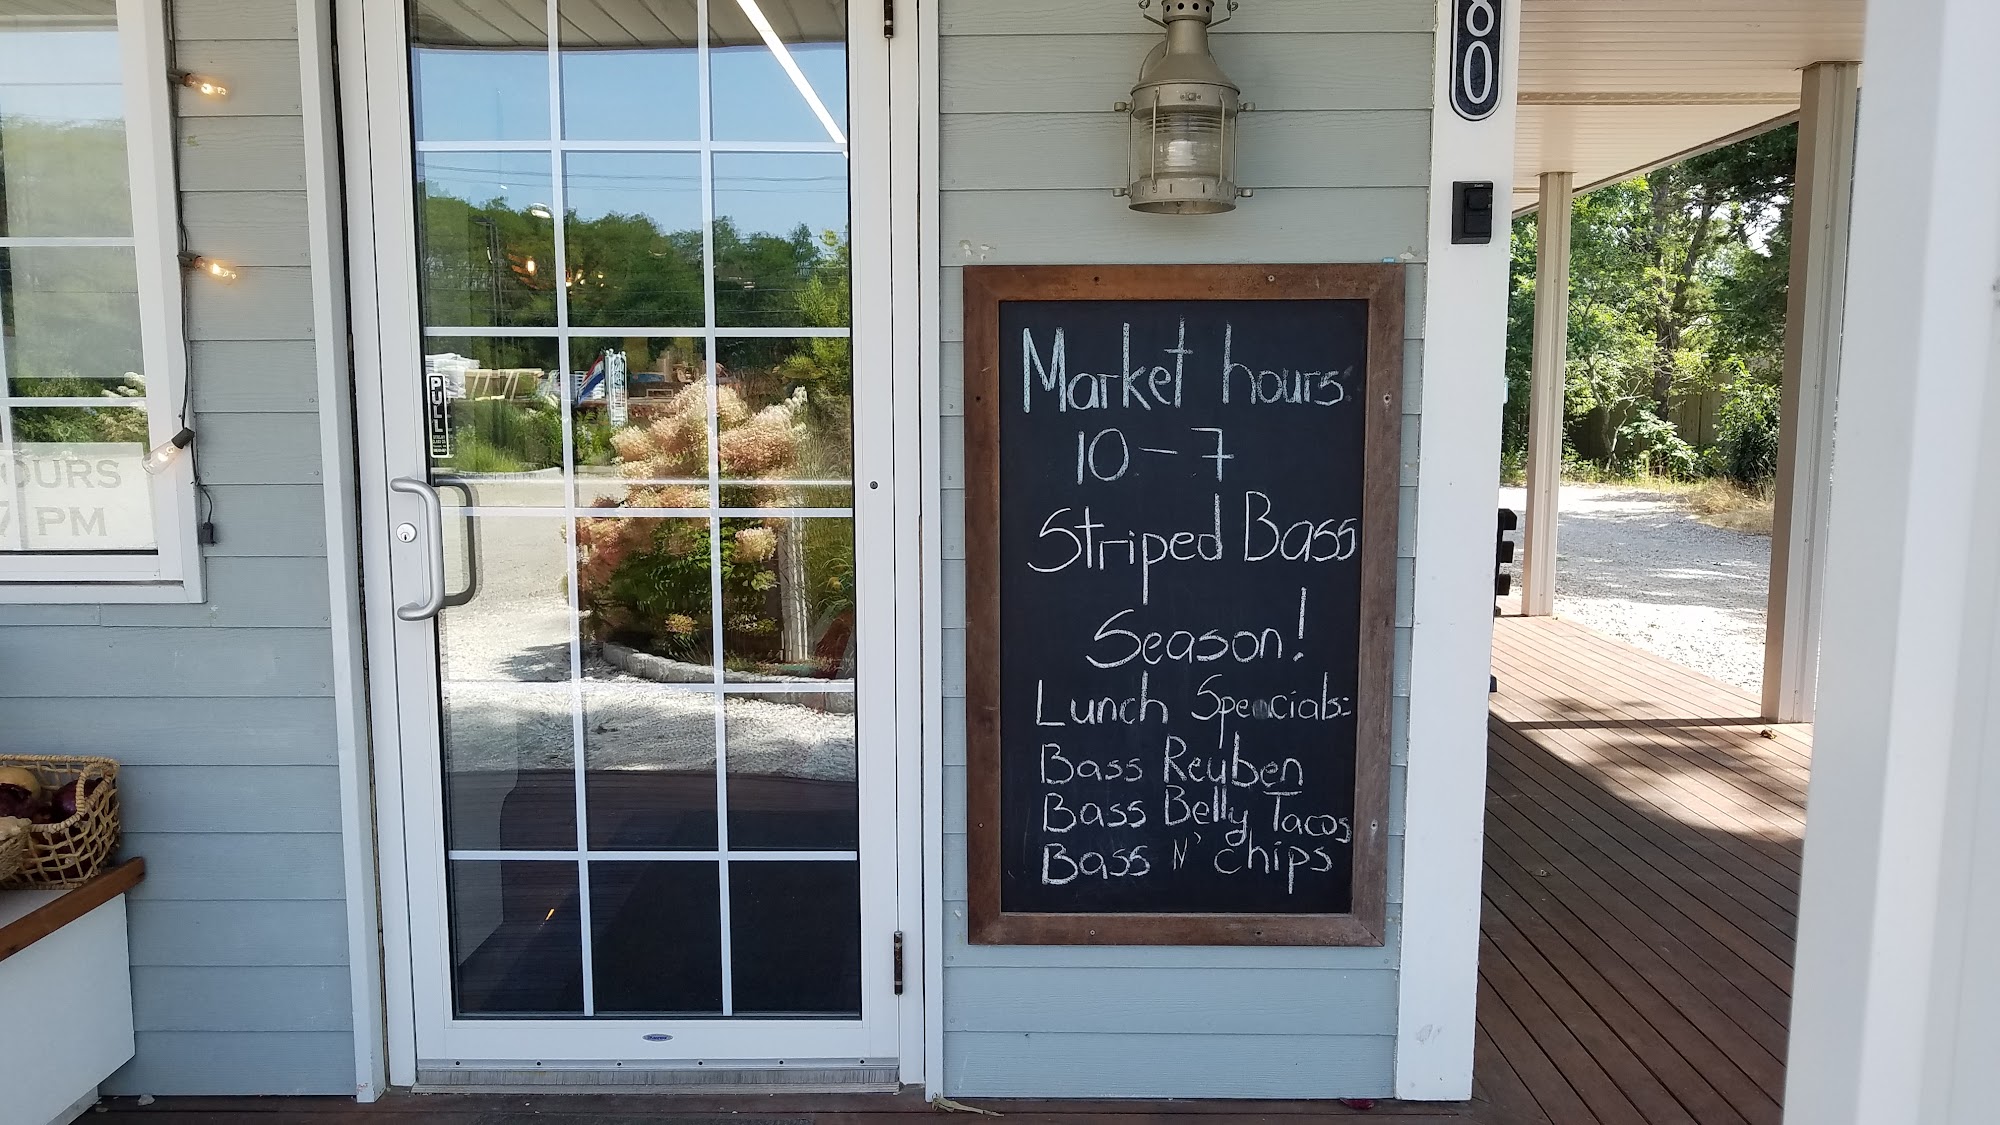 80
PULL
OURS
7 PM
Market hours
10-7
Striped Bass
Season!
Lunch Specials:
Bass Reuben
Bass Belly Tacos
Bass N' chips